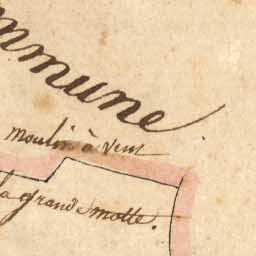 mmune
moulin à vent
la grande motte.